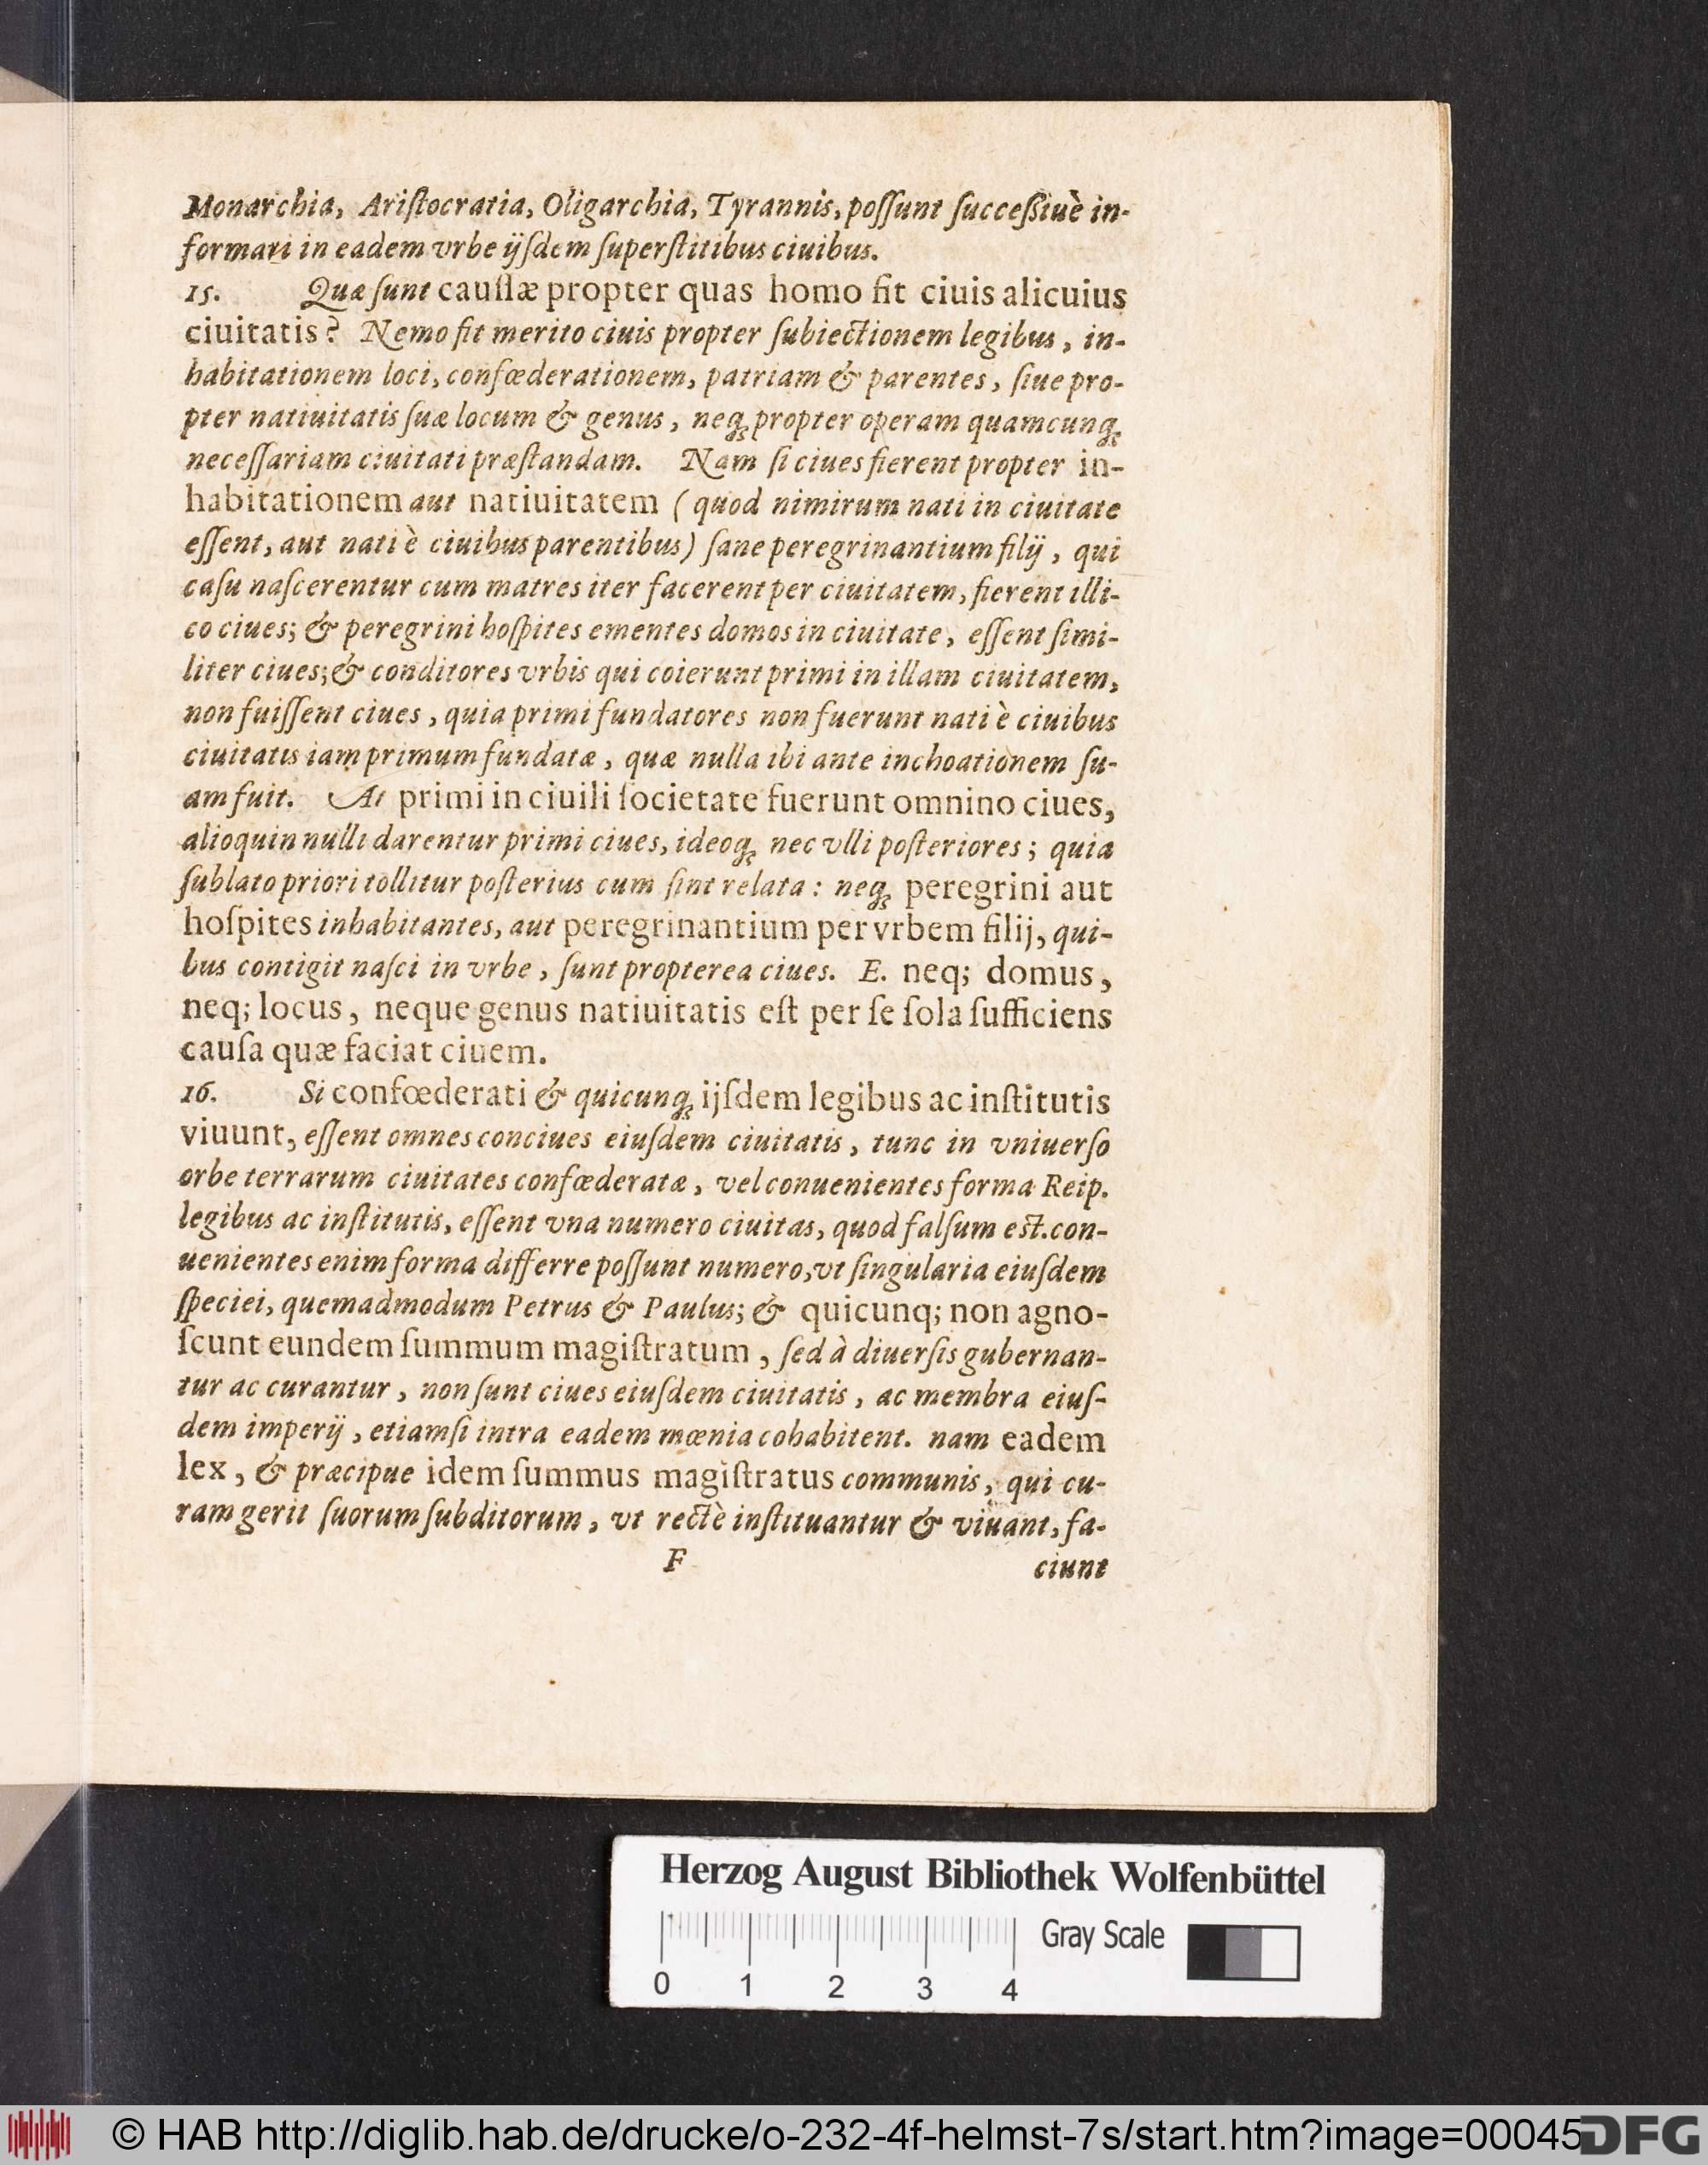 Monarchia, Ariſtocratia, Oligarchia, Tyrannis, poſſunt ſucceßiuè in-
formari in eadem vrbe ijſdem ſuperſtitibus ciuibus.
15. Quæ ſunt cauſſæ propter quas homo fit ciuis alicuius
ciuitatis? Nemo fit merito ciuis propter ſubiectionem legibus, in-
habitationem loci, confœderationem, patriam & parentes, ſiue pro-
pter natiuitatis ſuæ locum & genus, neq; propter operam quamcunq;
neceſſariam ciuitati præſtandam. Nam ſi ciues fierent propter in-
habitationem aut natiuitatem (quod nimirum nati in ciuitate
eſſent, aut nati è ciuibus parentibus) ſane peregrinantium filij, qui
caſu naſcerentur cum matres iter facerent per ciuitatem, fierent illi-
co ciues; & peregrini hoſpites ementes domos in ciuitate, eſſent ſimi-
liter ciues; & conditores vrbis qui coierunt primi in illam ciuitatem,
non fuiſſent ciues, quia primi fundatores non fuerunt nati è ciuibus
ciuitatis iam primum fundatæ, quæ nulla ibi ante inchoationem ſu-
am fuit. At primi in ciuili ſocietate fuerunt omnino ciues,
alioquin nulli darentur primi ciues, ideoq; nec vlli poſteriores; quia
ſublato priori tollitur poſterius cum ſint relata: neq; peregrini aut
hoſpites inhabitantes, aut peregrinantium per vrbem filij, qui-
bus contigit naſci in vrbe, ſunt propterea ciues. E. neq; domus,
neq; locus, neque genus natiuitatis eſt per ſe ſola ſufficiens
cauſa quæ faciat ciuem.
16. Si confœderati & quicunq; ijſdem legibus ac inſtitutis
viuunt, eſſent omnes conciues eiuſdem ciuitatis, tunc in vniuerſo
orbe terrarum ciuitates confœderatæ, vel conuenientes forma Reip.
legibus ac inſtitutis, eſſent vna numero ciuitas, quod falſum eſt. con-
uenientes enim forma differre poſſunt numero, vt ſingularia eiuſdem
ſpeciei, quemadmodum Petrus & Paulus; & quicunq; non agno-
ſcunt eundem ſummum magiſtratum, ſed à diuerſis gubernan-
tur ac curantur, non ſunt ciues eiuſdem ciuitatis, ac membra eiuſ-
dem imperij, etiamſi intra eadem mœnia cohabitent. nam eadem
lex, & præcipue idem ſummus magiſtratus communis, qui cu-
ram gerit ſuorum ſubditorum, vt rectè inſtituantur & viuant, fa-
F ciunt
Herzog August Bibliothek Wolfenbüttel
Gray Scale
0 1 2 3 4
© HAB http://diglib.hab.de/drucke/o-232-4f-helmst-7s/start.htm?image=00045
DFG